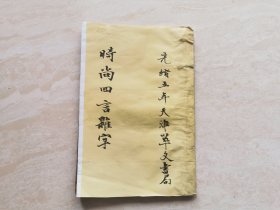 光緒五年天津萃文書局
時尚四言雜字